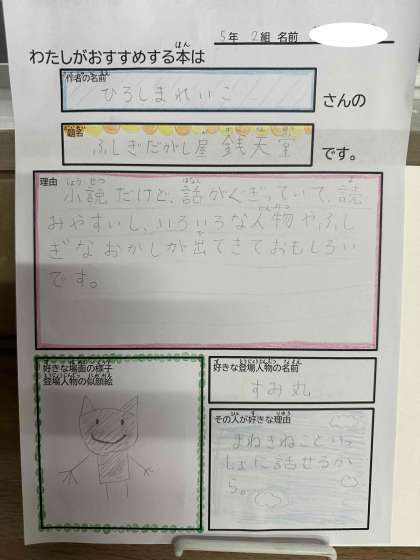 5年 2組 名前
わたしがおすすめする本は
作者の名前
ひろしまれいこ
さんの
題名
ふしぎだがし屋 銭天堂
です。
理由
小説だけど、話がくぎっていて、読
みやすいし、いろいろな人物やふし
ぎなおかしが出てきておもしろい
です。
好きな場面の様子
登場人物の似顔絵
好きな登場人物の名前
すみ丸
その人が好きな理由
まねきねこといっ
しょに話せるか
ら。